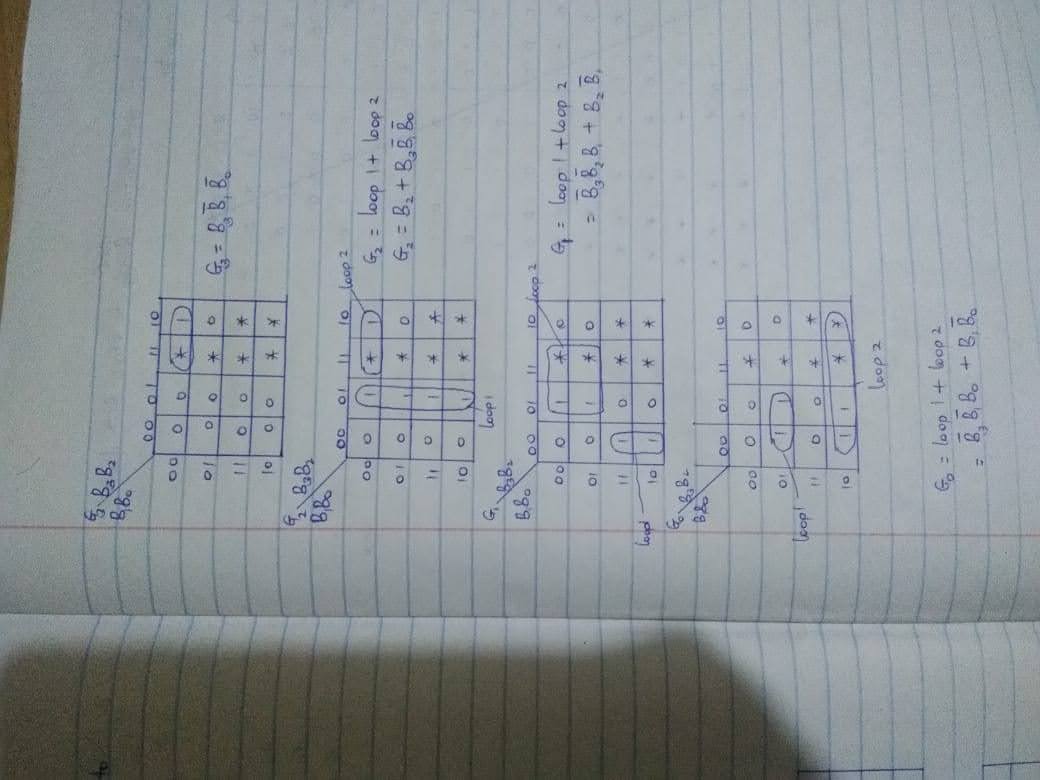 G₃ B₃B₂
B₁B₀
00 01 11 10
00 0 0 * 1
01 0 0 * 0
11 0 0 * *
10 0 0 * *
G₃ = B₃B̄₁B̄₀
G₂ B₃B₂
B₁B₀
00 01 11 10
loop 2
00 0 1 * 1
01 0 1 * 0
11 0 1 * *
10 0 1 * *
loop 1
G₂ = loop 1 + loop 2
G₂ = B₂ + B₃B̄₁B̄₀
G₁ B₃B₂
B₁B₀
00 01 11 10
loop 2
00 0 1 * 0
01 0 1 * 0
11 1 0 * *
10 1 0 * *
loop 1
G₁ = loop 1 + loop 2
= B̄₃B̄₂B₁ + B₂B̄₁
G₀ B₃B₂
B₁B₀
00 01 11 10
00 0 0 * 0
01 1 1 * 0
11 0 0 * *
10 1 1 * *
loop 1
loop 2
G₀ = loop 1 + loop 2
= B̄₃B̄₁B₀ + B₁B̄₀